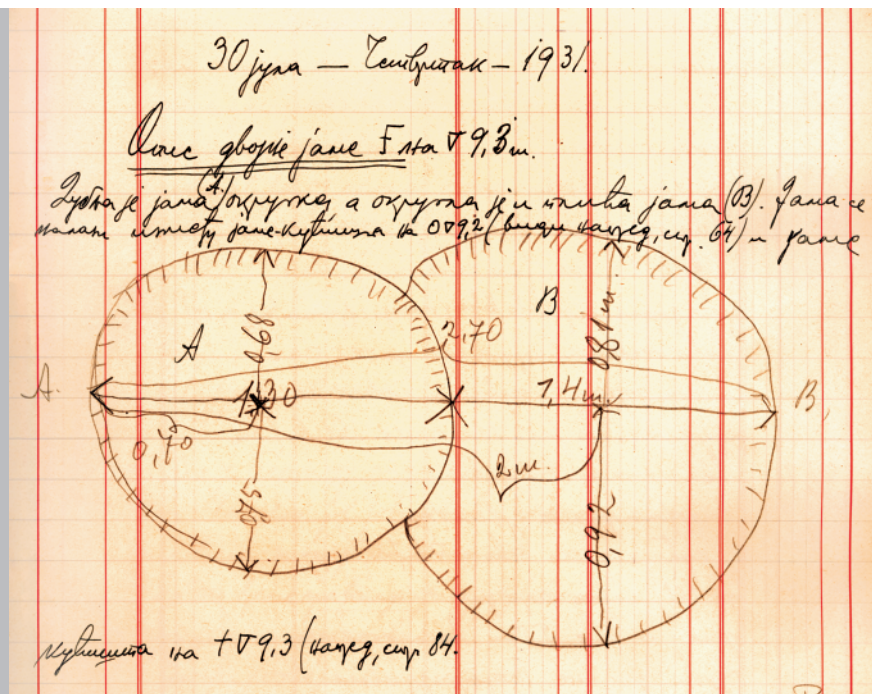 30 јула — Четвртак — 1931.
Опис двојне јаме F на ∇ 9,3 m.
је јама (А) округла а округла је и плића јама (В). Јама се
налази између јаме-кућишта на 0∇9,2 (види напред, стр. 64) и јаме
B
A
0,68
0,81 m.
2,70
A.
1,30
1,4 m.
B,
0,70
2 m.
0,75
0,92
кућишта на +∇ 9,3 (напред, стр. 84.